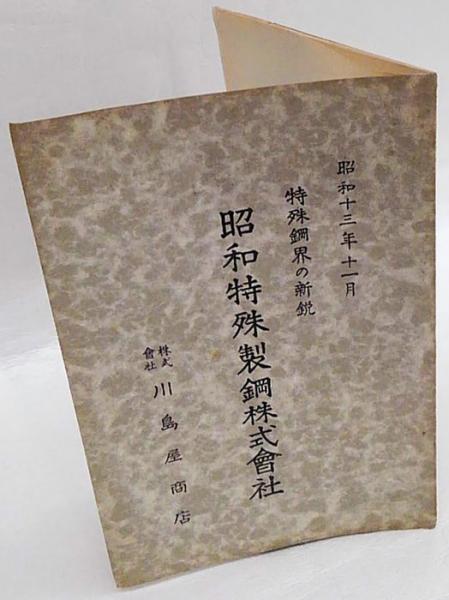 昭和十三年十一月
特殊鋼界の新鋭
昭和特殊製鋼株式會社
株式會社 川島屋商店